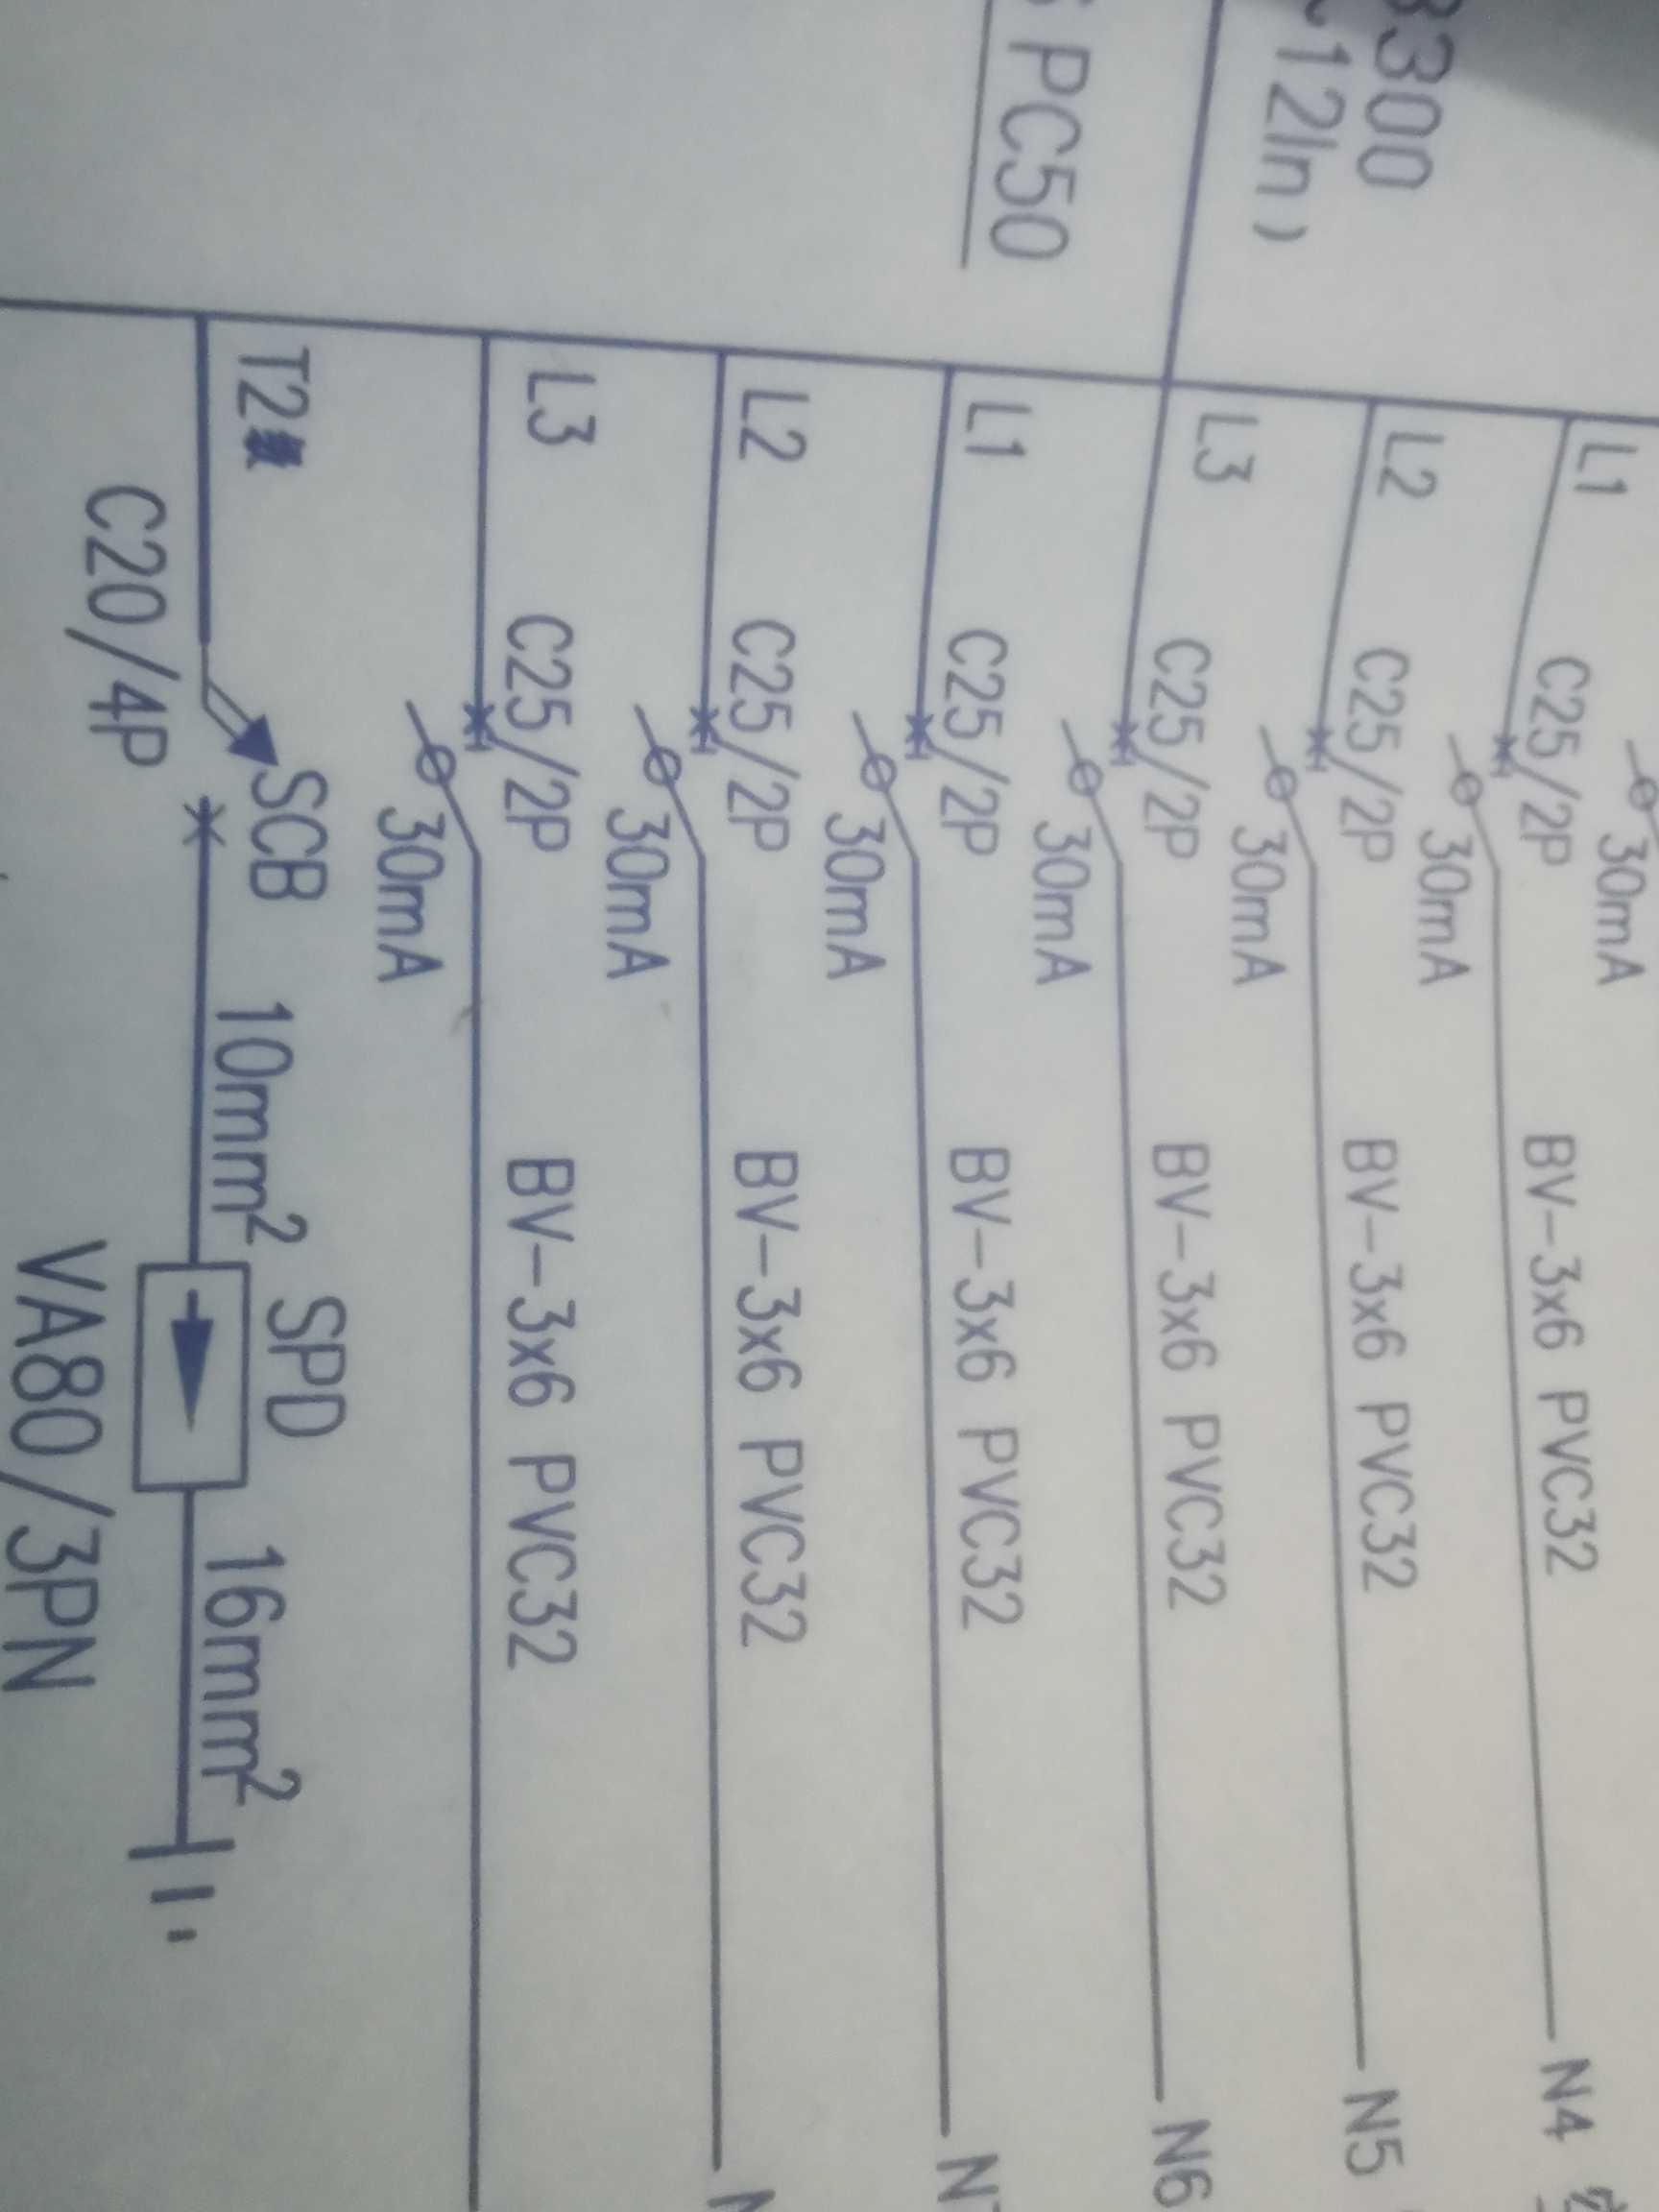 300
12In)
PC50
30mA
L1 C25/2P BV-3x6 PVC32 N4
30mA
L2 C25/2P BV-3x6 PVC32 N5
30mA
L3 C25/2P BV-3x6 PVC32 N6
30mA
L1 C25/2P BV-3x6 PVC32
30mA
L2 C25/2P BV-3x6 PVC32
30mA
L3 C25/2P BV-3x6 PVC32
30mA
T2 SCB 10mm² SPD 16mm²
C20/4P VA80/3PN